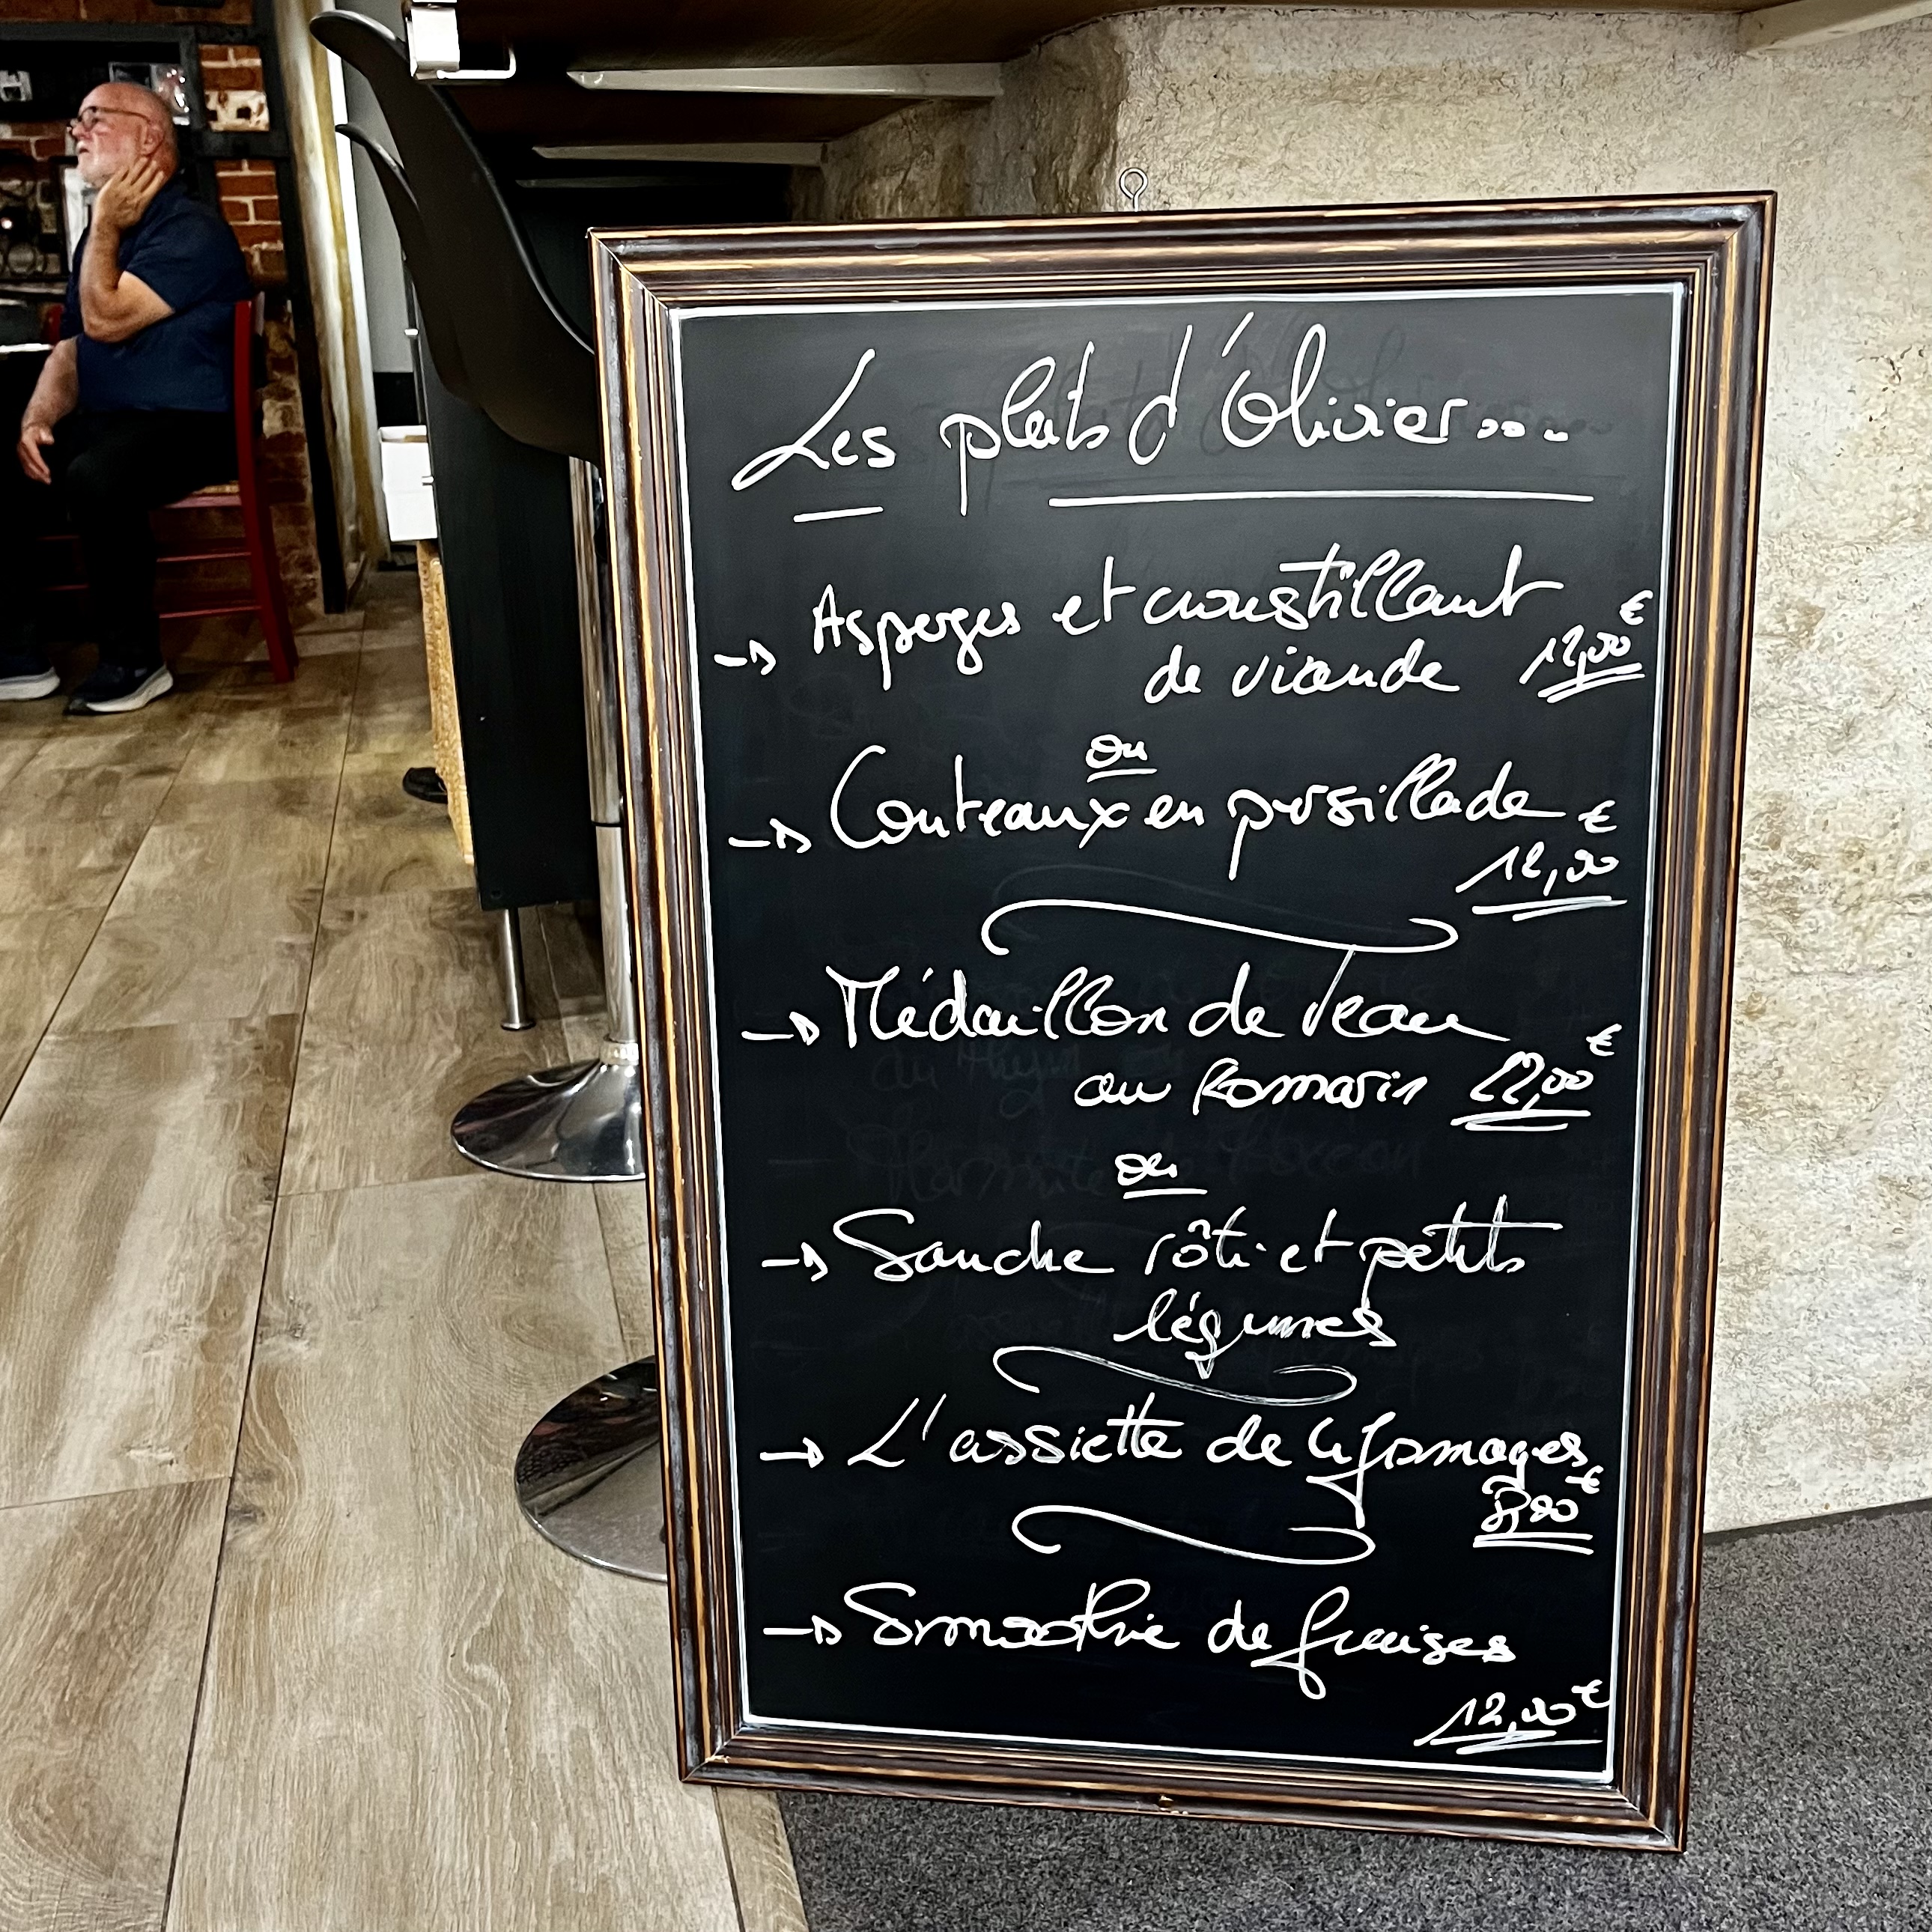 Les plats d'Olivier...
Asperges et croustillant
de viande 12,00€
ou
Couteaux en persillade €
12,00
Médaillon de Veau €
au Romarin 22,00
ou
Sandre rôti et petits
légumes
L'assiette de 4 fromages
€
Smoothie de fraises
12,00€